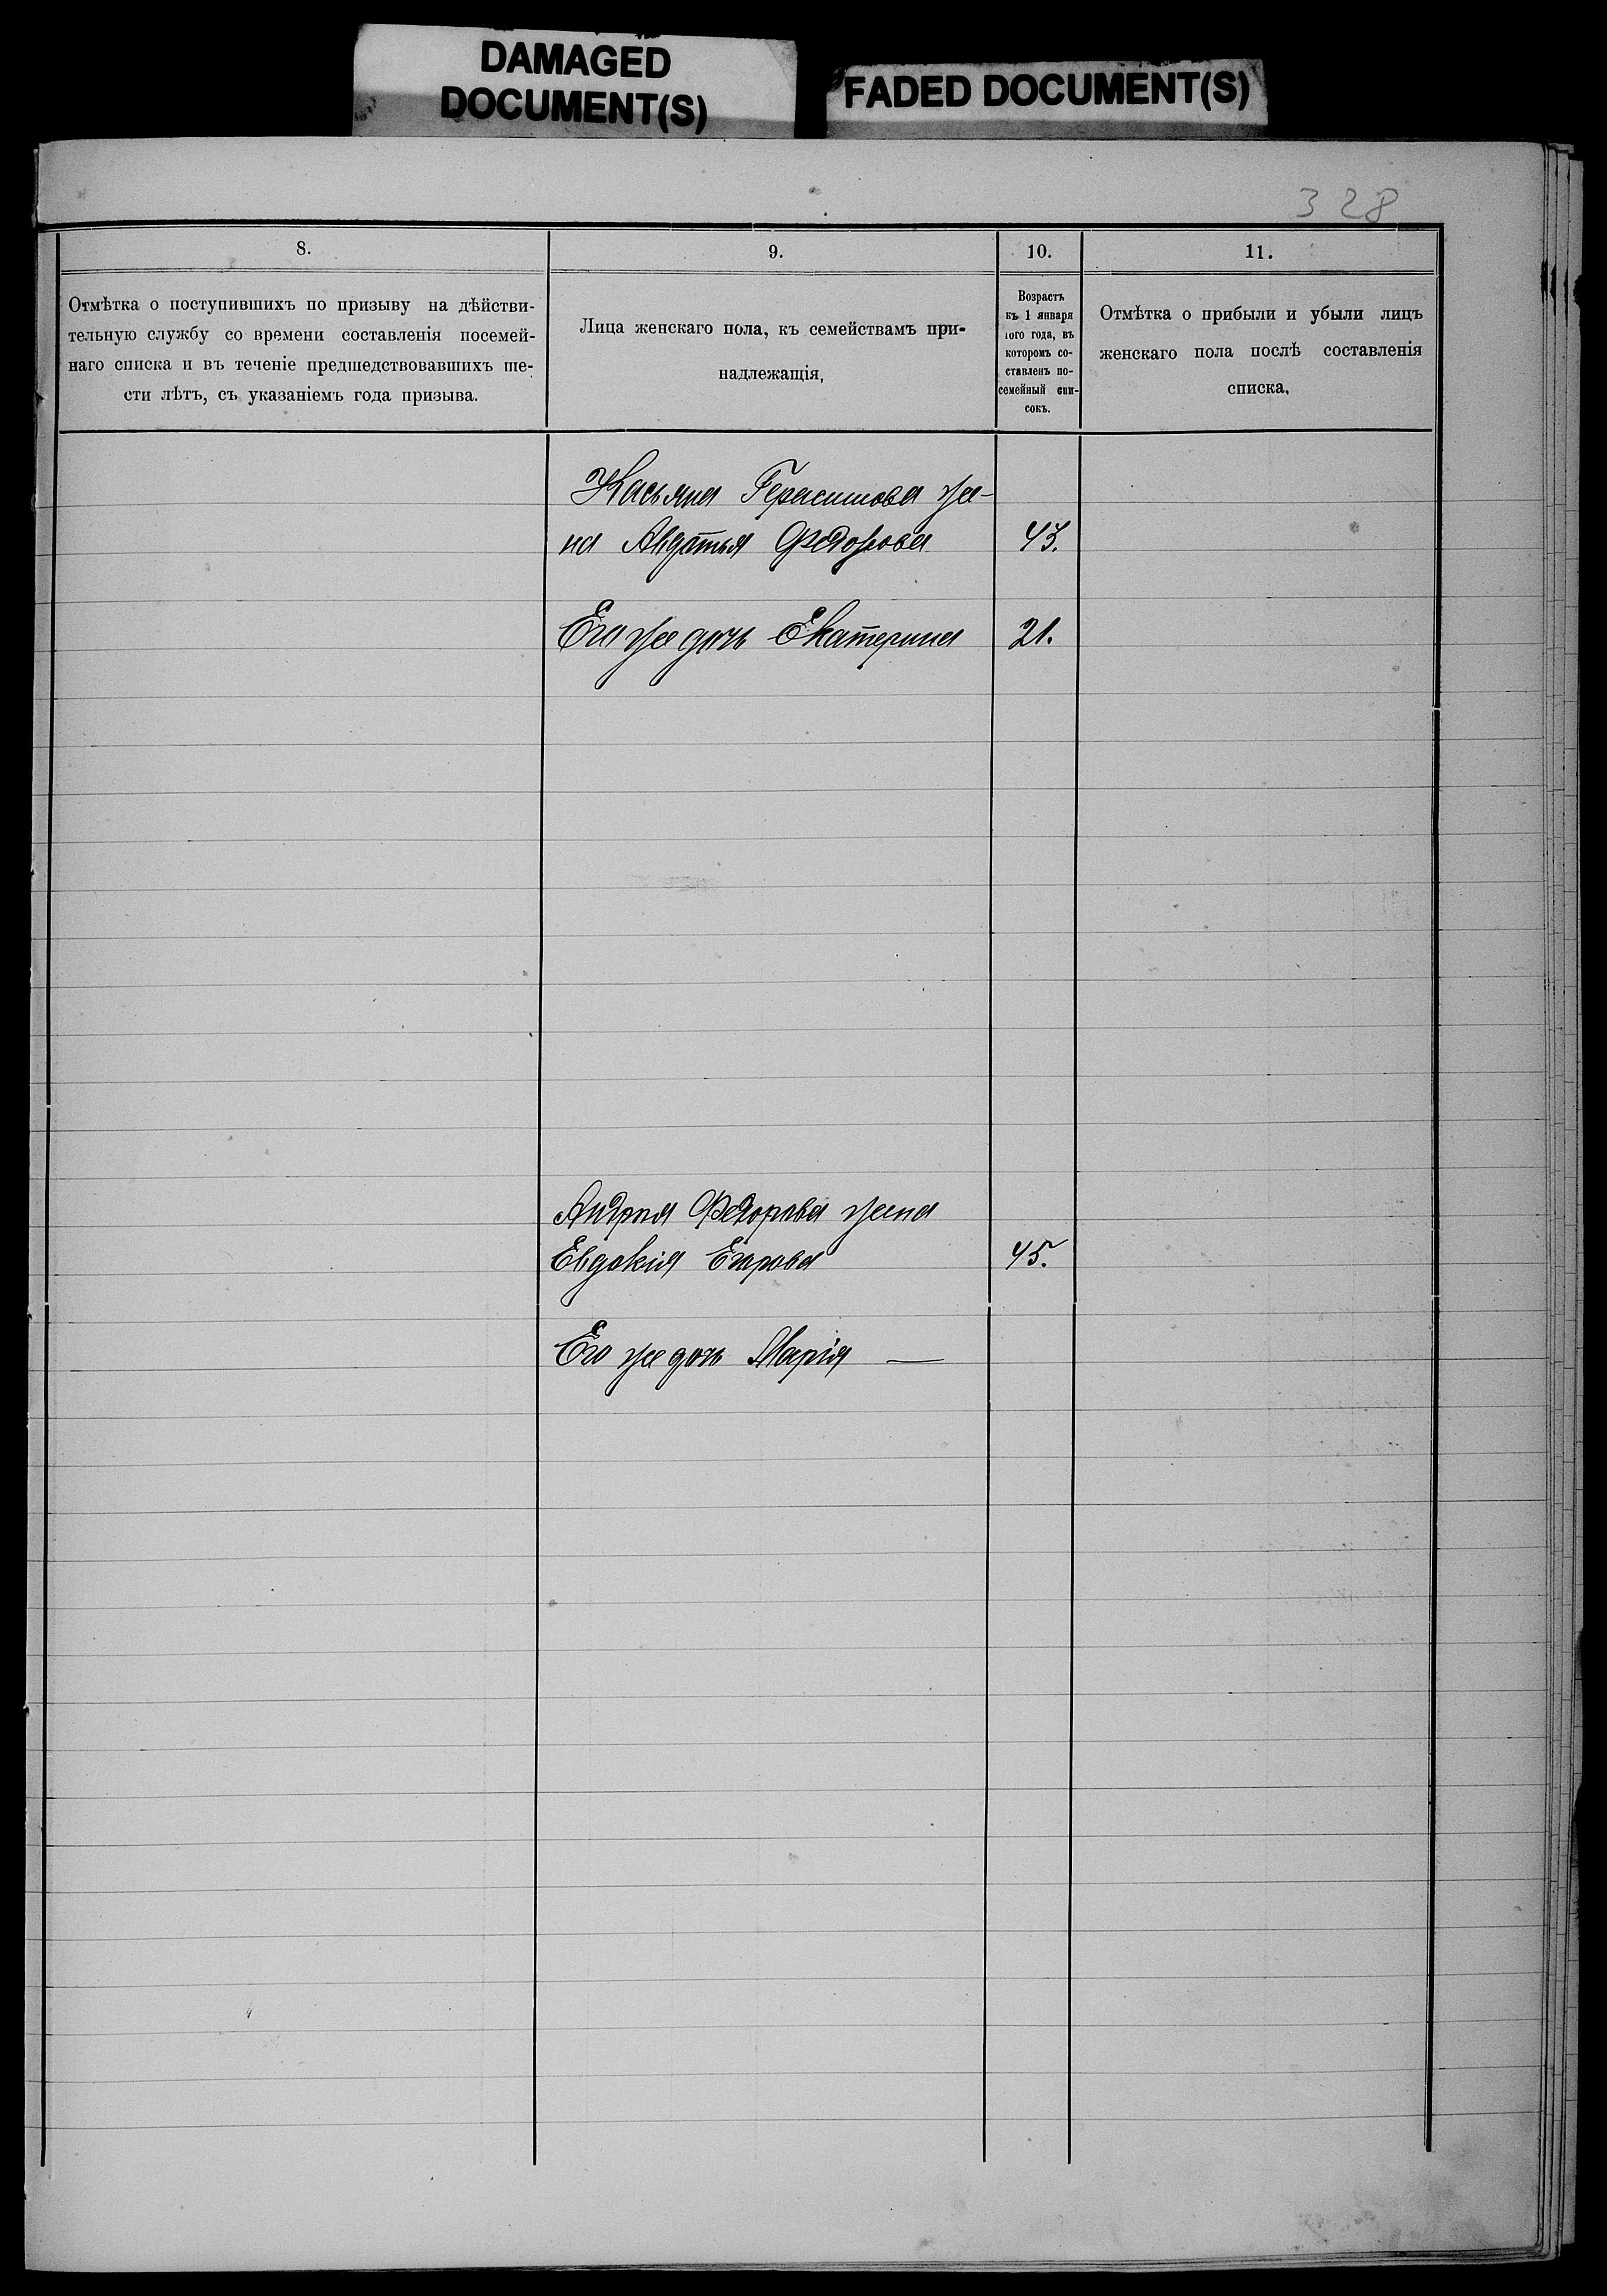 DAMAGED
DOCUMENT(S)
FADED DOCUMENT(S)
328
8.
Отмѣтка о поступившихъ по призыву на дѣйстви-
тельную службу со времени составленія посемей-
наго списка и въ теченіе предшедствовавшихъ ше-
сти лѣтъ, съ указаніемъ года призыва.
9.
Лица женскаго пола, къ семействамъ при-
надлежащія,
10.
Возрастъ
къ 1 января
того года, въ
которомъ со-
ставленъ по-
семейный спи-
сокъ.
11.
Отмѣтка о прибыли и убыли лицъ
женскаго пола послѣ составленія
списка,
Касьяна Герасимова же-
на Авдотья Федорова 43.
Его же дочь Екатерина 21.
Андрея Федорова жена
Евдокія Егорова 45.
Его же дочь Марія —